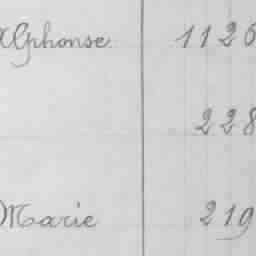 Alphonse 1126
228
Marie 219